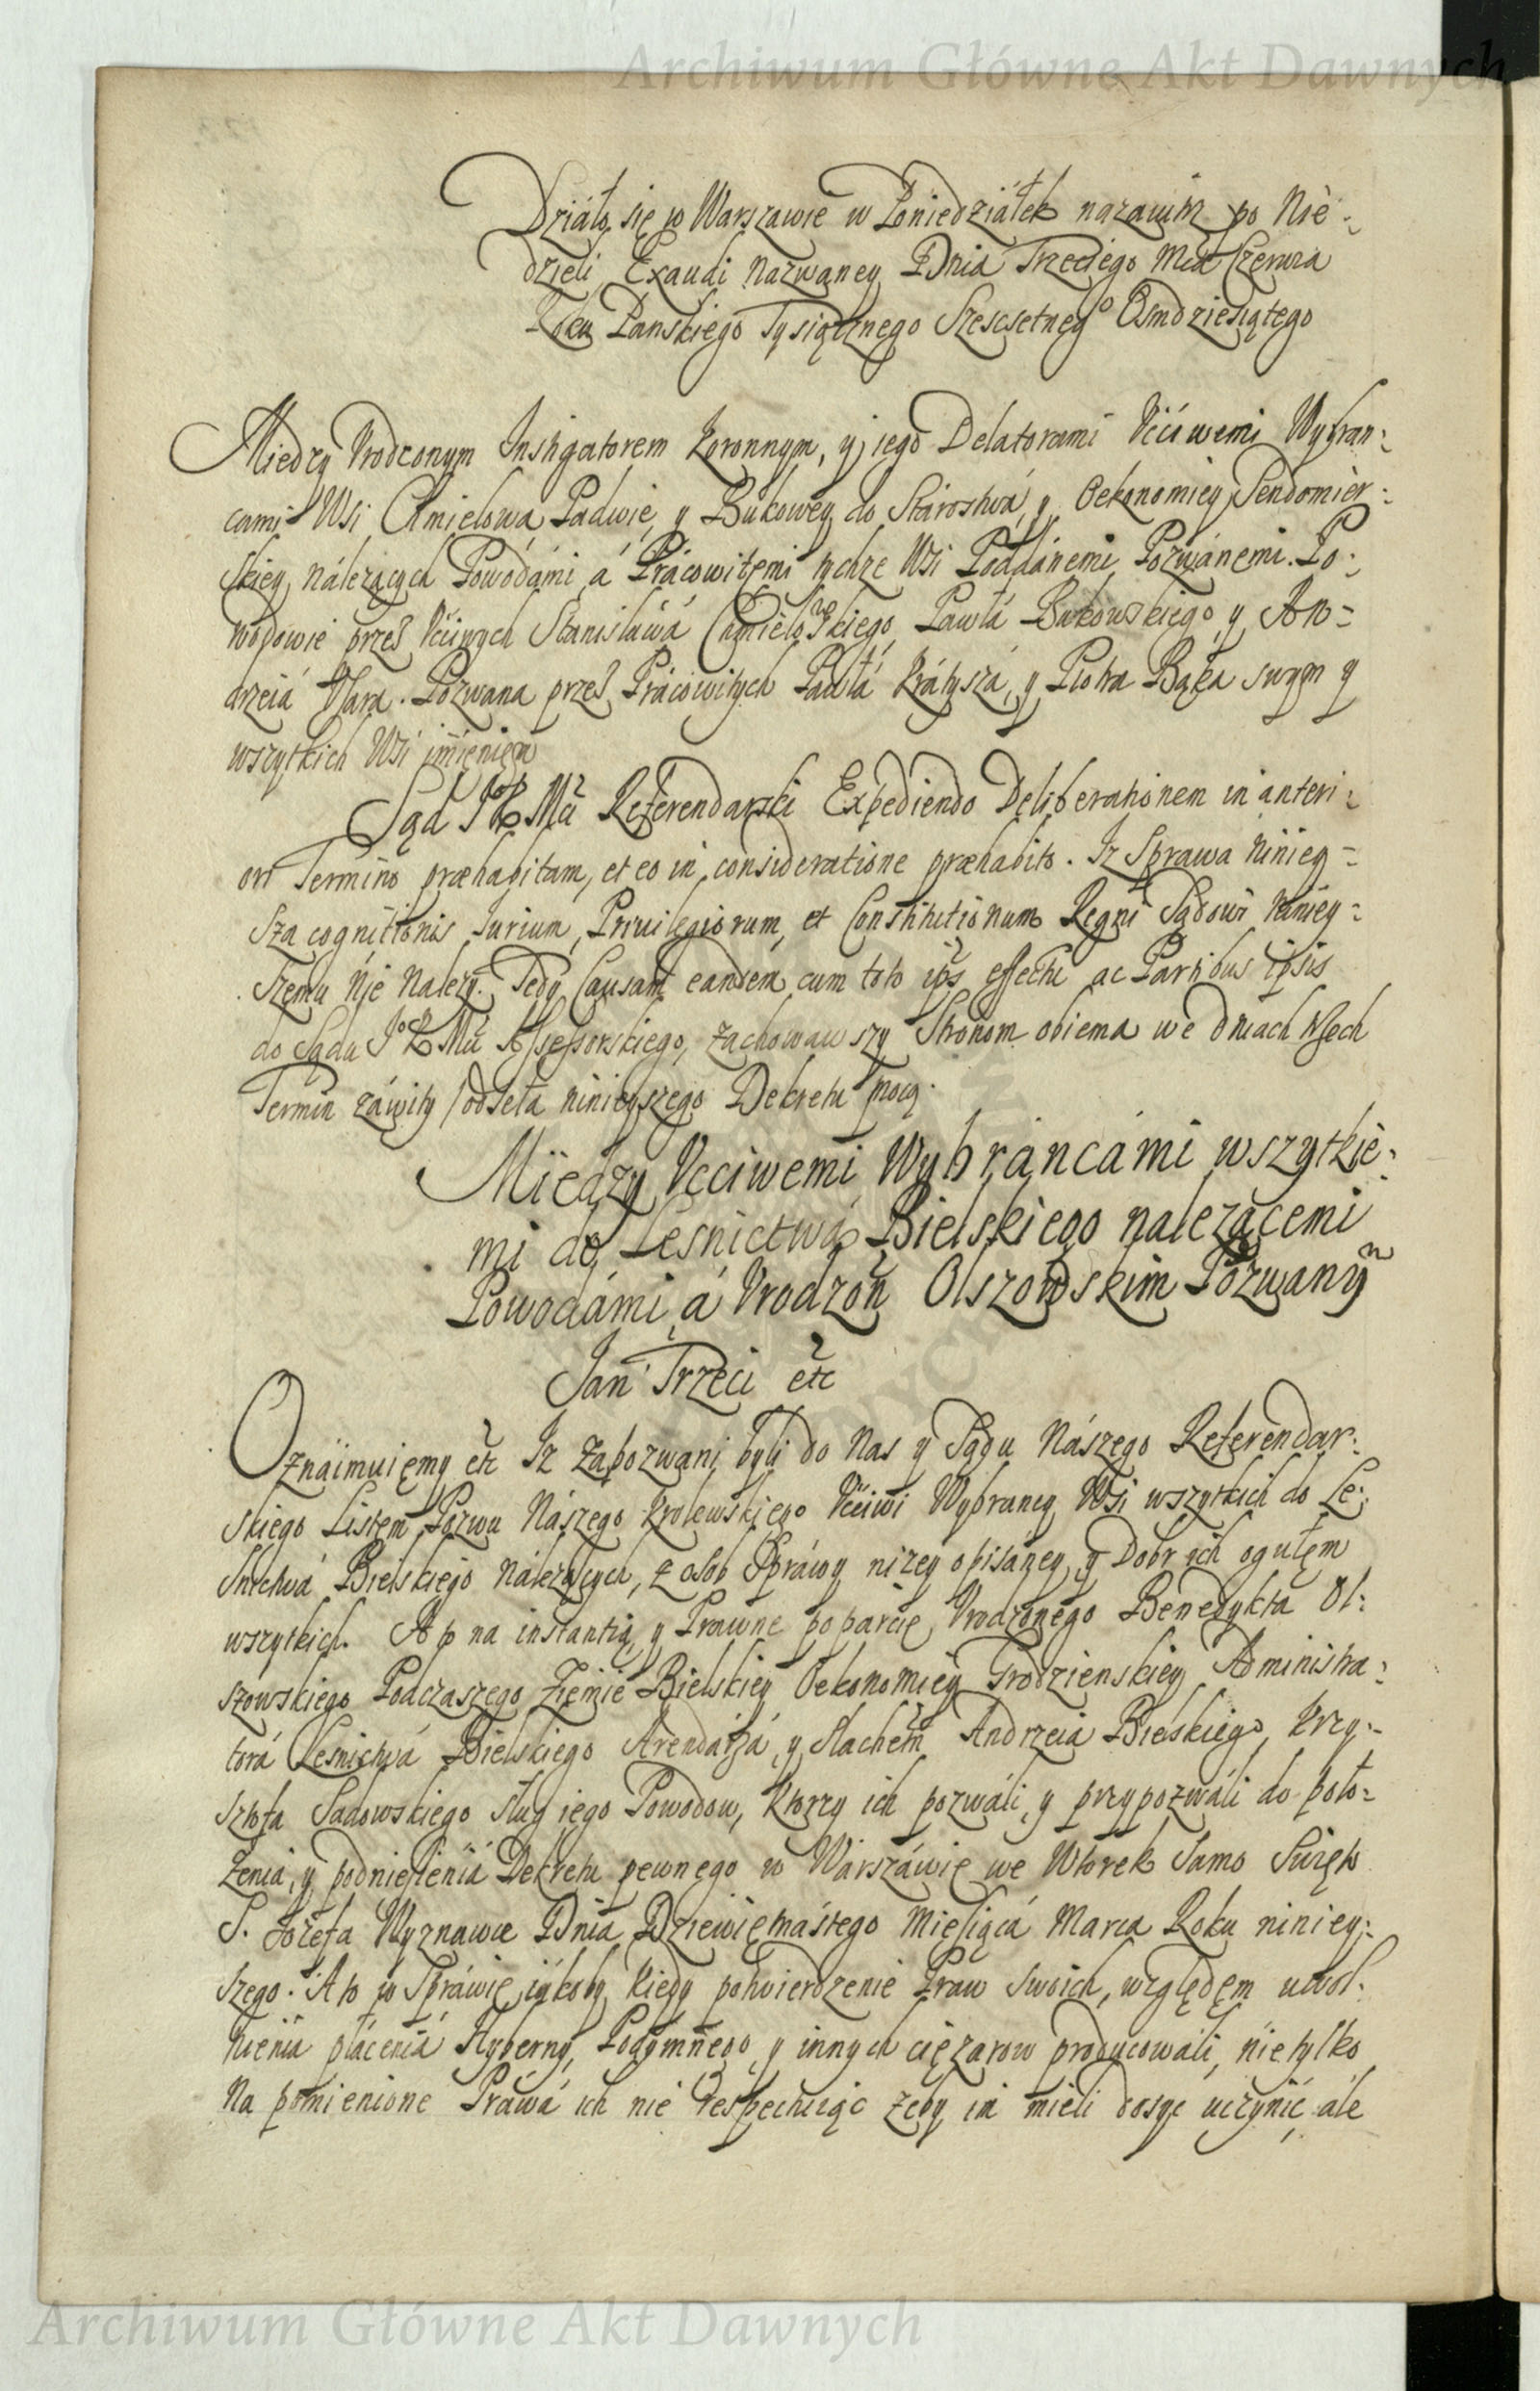 Archiwum Główne Akt Dawnych
Działo się w Warszawie w Poniedziáłek nazaiutrz po Nie-
dzieli Exaudi Nazwaney Dnia Trzeciego Mca Czerwca
Roku Panskiego Tysiącznego Szescsetnego Osmdziesiątego
Między Vrodzonym Instigatorem Koronnym, y iego Delatorami Vćciwemi Wybran:
cami Wsi Chmielowá Padwie, y Bukowey do Stárostwá, y Oekonomiey Sendomier:
skiey należących Powodámi á Prácowitemi tychże Wsi Poddánemi Pozwánemi. Po:
wodowie przeſ Vććiwych Stanisłáwá Chmielowskiego, Pawłá Bukowskiego, y An=
drzeiá Vſara. Pozwana przeſ Prácowitych Páwłá Krátyszá, y Piotra Bąka swym y
wszytkich Wsi imieniem
Sąd JKMći Referendarski Expediendo Deliberationem in anteri:
ori Termino præhabitam, et eo in consideratione præhabito. Iz Sprawa niniey=
sza cognitionis Iurium, Priuilegiorum, et Constitutionum Regni Sądowi niniey=
szemu nie należy. Tedy Causam eandem cum toto ips effectu ac Partibus ipsis
do Sądu JKMći Aſseſsorskiego, zachowawszy Stronom obiema we dniach trzech
Termin záwity odseła ninieyszego Dekretu mocą.
Między Vcciwemi Wybráncámi wszytkie:
mi do Lesnictwá Bielskiego należącemi
Powodámi á Vrodzon Olszowskim Pozwany
Jan Trzeci etc
Oznáimuięmy etc Iz Zapozwani byli do Nas y Sądu Nászego Referendar:
skiego Listęm Pozwu Nászego Krolewskiego Vććiwi Wybrancy Wsi wszytkich do Le:
śnictwá Bielskiego Náleżących, z osob Spráwy niżey opisáney, y Dobr ich ogułęm
wszytkich. A to na instantią, y Prawne poparcie Vrodzonego Benedykta Ol:
szowskiego Podczaszego Ziemie Bielskiey Oekonomiey Grodzienskiey Administra:
torá Lesnictwá Bielskiego Arendárzá, y Slachetn Andrzeia Bielskiego, Krzy:
sztofa Sadowskiego sług iego Powodow, Ktorzy ich pozwáli, y przypozwáli do poło=
żenia, y podnieſienia Dekretu pewnego w Wárszáwie we Wtorek Samo Swięto
S. Jozefa Wyznawce Dnia Dziewiętnástego Mieſiącá Marca Roku niniey:
szego. A to w Spráwie iákoby kiedy potwierdzenie Praw swoich, względem uwol:
nienia płácenia Hyberny, Podymnego, y innych ciężarow producowali, nie tylko
Na pomienione Práwá ich nie respectuiąc żeby im mieli dosyc uczynić, ále
Archiwum Główne Akt Dawnych